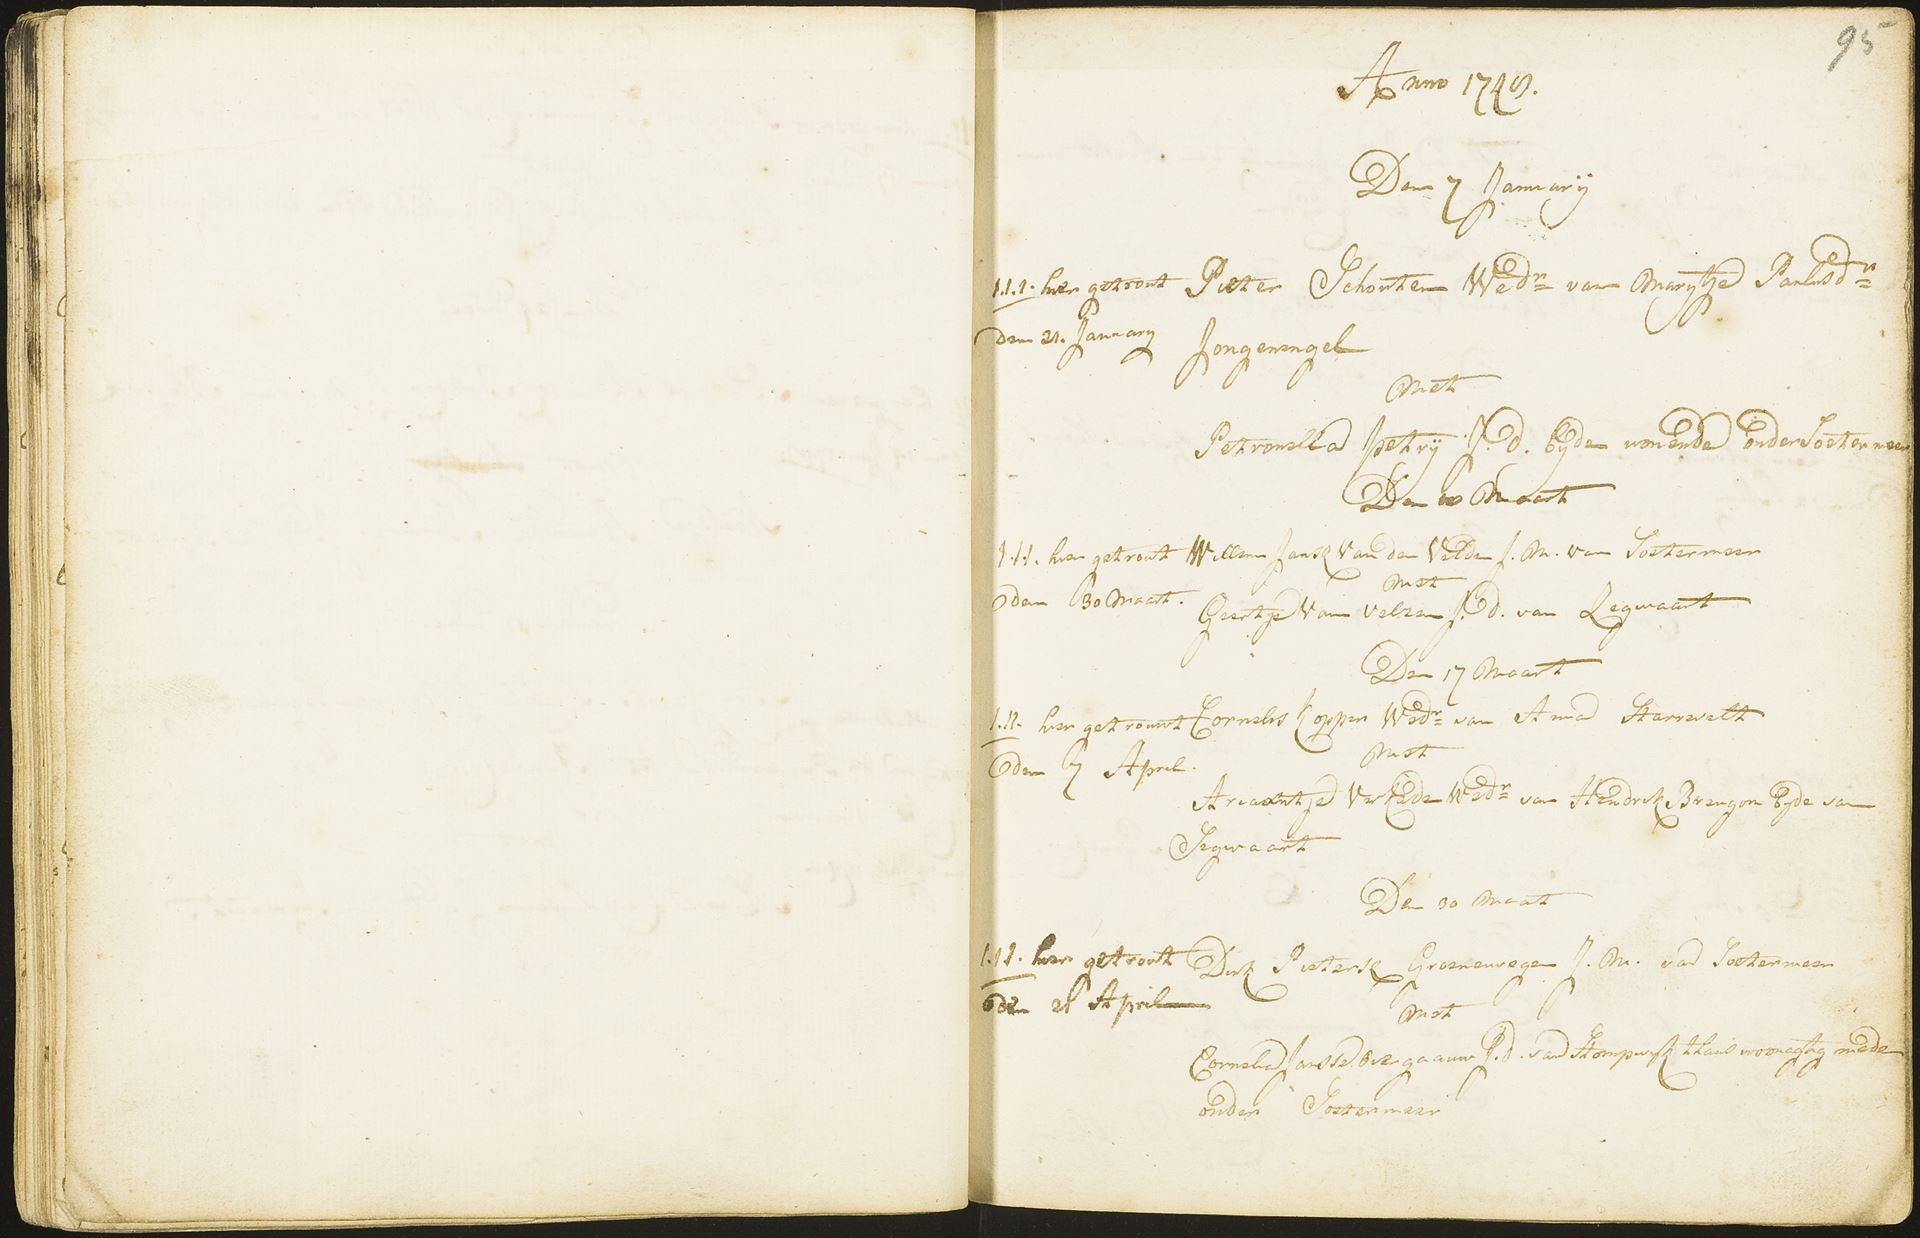 95
Anno 1748.
Den 7 Januarij
1.1.1. hier getrout Pieter Schouten Wedr van Marijtje Paulusdr
den 21. January Jongenengel
Met
Petronella Petrij J. d. Byde wonende onder Soetermeer
Den 10 Maart
1.1.1. hier getrout Willem Janse Van der Velde J. M. van Soetermeer
Met
den 30 Maart. Geertje Van Velzen J. d. van Zegwaart
Den 17 Maart
1.11. hier getrouwt Cornelis Kopper Wedr van Anna Starrevelt
Met
den 7 April. Ariaantje Verkade Wedr van Hendrik Brengon Byde van
Segwaart
Den 30 Maart
1.1.1. hier getrout Dirk Pieterse Groenewegen J. M. van Soetermeer
den 21 April Met
Cornelia Janse Overgaauw J. d. van Stompwyk thans woonagtig mede
onder Soetermeer